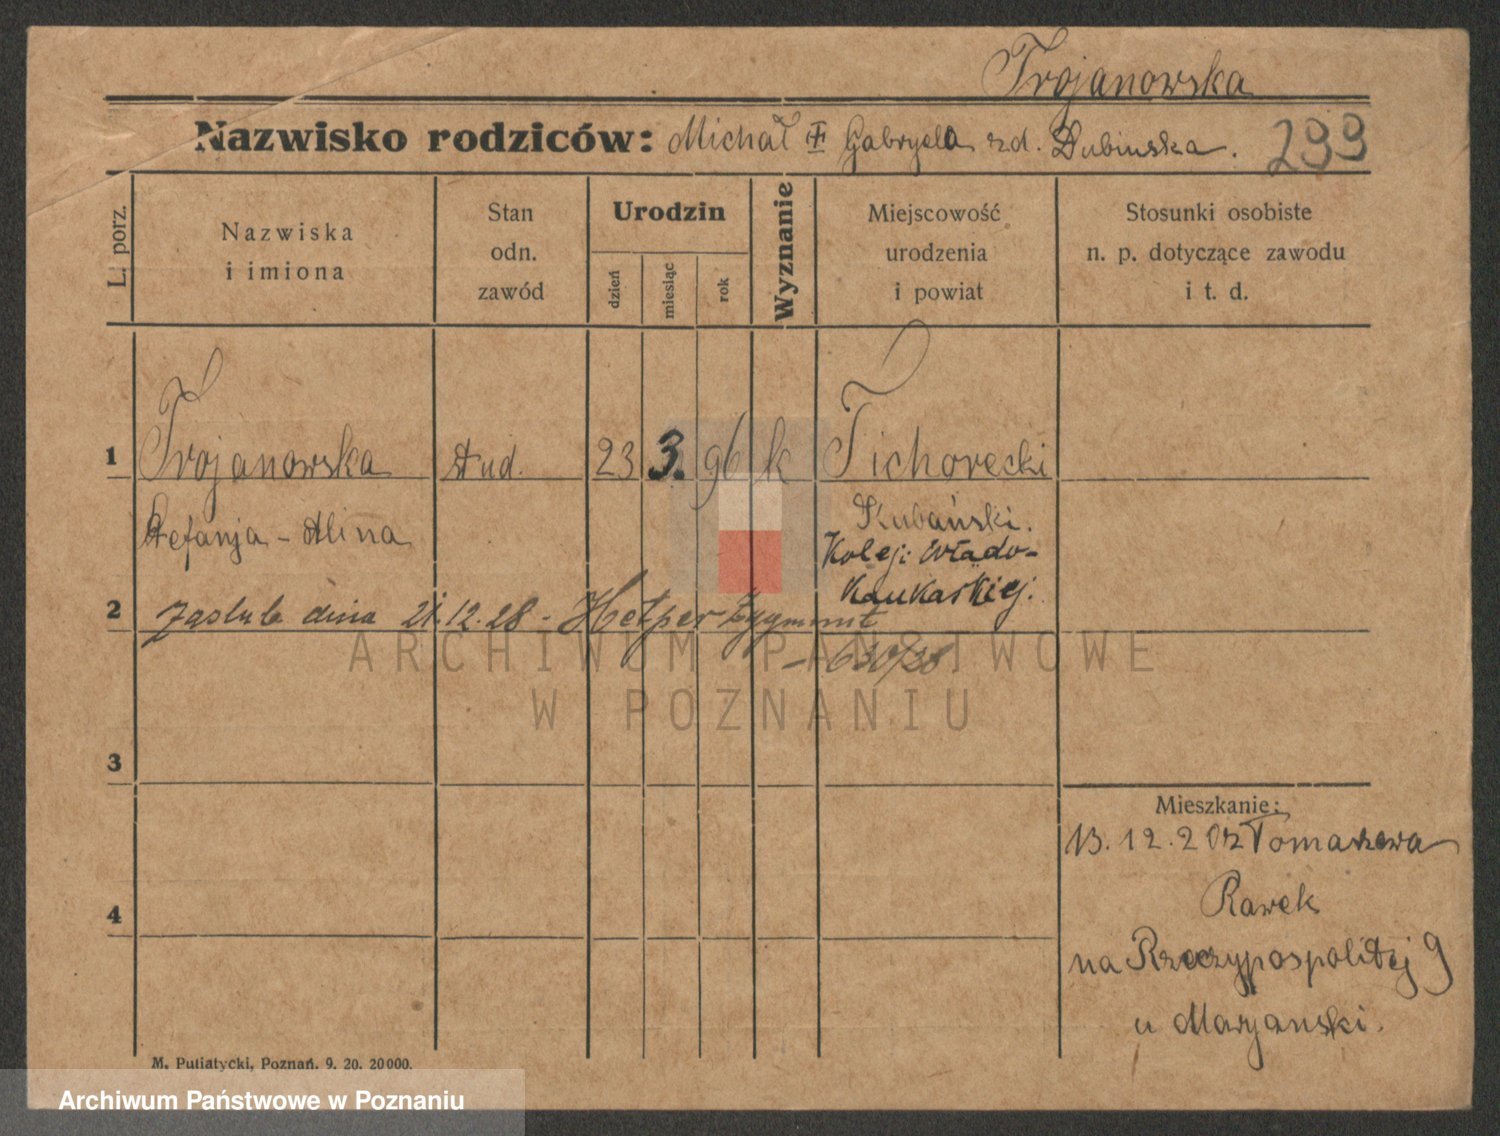 Trojanowska
Nazwisko rodziców: Michał Gabryela zd. Dubinska. 299
L. porz.
Nazwiska
i imiona
Stan
odn.
zawód
Urodzin
dzień
miesiąc
rok
Wyznanie
Miejscowość
urodzenia
i powiat
Stosunki osobiste
n. p. dotyczące zawodu
i t. d.
1 Trojanowska stud. 23 3. 96 k Tichorecki
Stefanja - Alina
Kubański.
Kolej: Wlado-
Kaukaskiej.
2 zaślub. dnia 21.12.28 - Helper Zygmunt
- 630/28
ARCHIWUM PAŃSTWOWE
W POZNANIU
3
4
Mieszkanie:
13.12.20 z Tomaszowa
Rawsk
na Rzeczypospolitej 9
u Marjanski.
M. Putiatycki, Poznań. 9. 20. 20000.
Archiwum Państwowe w Poznaniu